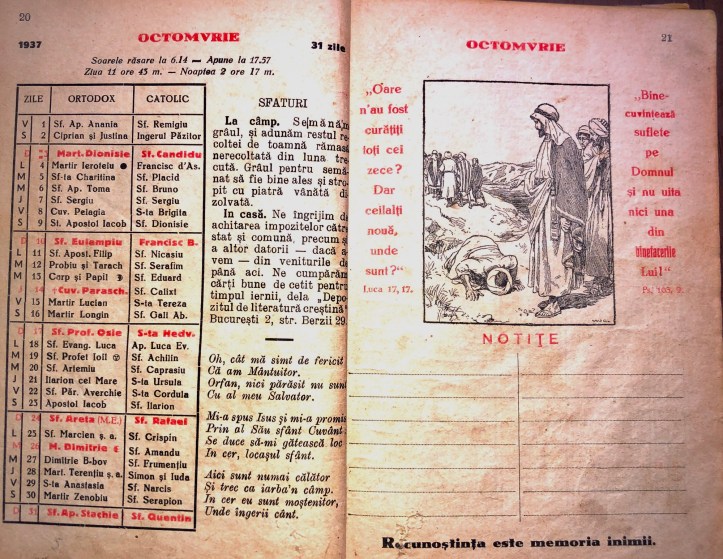 20
OCTOMVRIE
1937
31 zile
Soarele răsare la 6.14 — Apune la 17.57
Ziua 11 ore 43 m. — Noaptea 2 ore 17 m.
ZILE ORTODOX CATOLIC
V 1 Sf. Ap. Anania Sf. Remigiu
S 2 Ciprian și Justina Ingerul Păzitor
D Mart. Dionisie Sf. Candidu
L 4 Martir Ieroteiu Francisc d'As.
M 5 Sf-ta Charitina Sf. Placid
M 6 Sf. Ap. Toma Sf. Bruno
J 7 Sf. Sergiu Sf. Sergiu
V 8 Cuv. Pelagia S-ta Brigita
S 9 St. Apostol Iacob Sf. Dionisie
D 10 Sf. Eulampiu Francisc B.
L 11 Sf. Apost. Filip Sf. Nicasiu
M 12 Probiu și Tarach Sf. Serafim
M 13 Carp și Papil Sf. Eduard
14 †Cuv. Parasch. Sf. Calixt
V 15 Martir Lucian S-ta Tereza
S 16 Martir Longin Sf. Gall Ab.
D 17 Sf. Prof. Osie S-ta Hedv.
L 18 Sf. Evang. Luca Ap. Luca Ev.
M 19 Sf. Profet Ioil Sf. Achilin
M 20 Sf. Artemiu Sf. Caprasiu
J 21 Ilarion cel Mare S-ta Ursula
V 22 Sf. Păr. Averchie S-ta Cordula
S 23 Apostol Iacob Sf. Ilarion
D 24 Sf. Areta (M.E.) Sf. Rafael
L 25 Sf. Marcien ș. a. Sf. Crispin
M 26 M. Dimitrie Sf. Amandu
M 27 Dimitrie B-bov Sf. Frumențiu
J 28 Mart. Terențiu ș. a. Simon și Iuda
V 29 S-ta Anastasia Sf. Narcis
S 30 Martir Zenobiu Sf. Serapion
D 31 Sf. Ap. Stachie Sf. Quentin
SFATURI
La câmp. Semănăm
grâul, și adunăm restul re
coltei de toamnă rămasă
nerecoltată din luna tre
cută. Grâul pentru semă
nat să fie bine ales și stro
pit cu piatră vânătă di
zolvată.
In casă. Ne îngrijim de
achitarea impozitelor către
stat și comună, precum și
a altor datorii — dacă a
vem — din veniturile de
până aci. Ne cumpărăm
cărți bune de cetit pentru
timpul iernii, dela „Depo
zitul de literatură creștină"
București 2, str. Berzii 29.
Oh, cât mă simt de fericit
Că am Mântuitor.
Orfan, nici părăsit nu sunt
Cu al meu Salvator.
Mi-a spus Isus și mi-a promis
Prin al Său sfânt Cuvânt
Se duce să-mi gătească loc
In cer, locașul sfânt.
Aici sunt numai călător
Și trec ca iarba'n câmp.
In cer eu sunt moștenitor,
Unde îngerii cânt.
OCTOMVRIE
21
„Oare
n'au fost
curățiți
toți cei
zece?
Dar
ceilalți
nouă,
unde
sunt?"
Luca 17, 17.
„Bine-
cuvintează
suflete
pe
Domnul
și nu uita
nici una
din
binefacerile
Lui!"
Ps. 103, 2.
NOTIȚE
Recunoștința este memoria inimii.